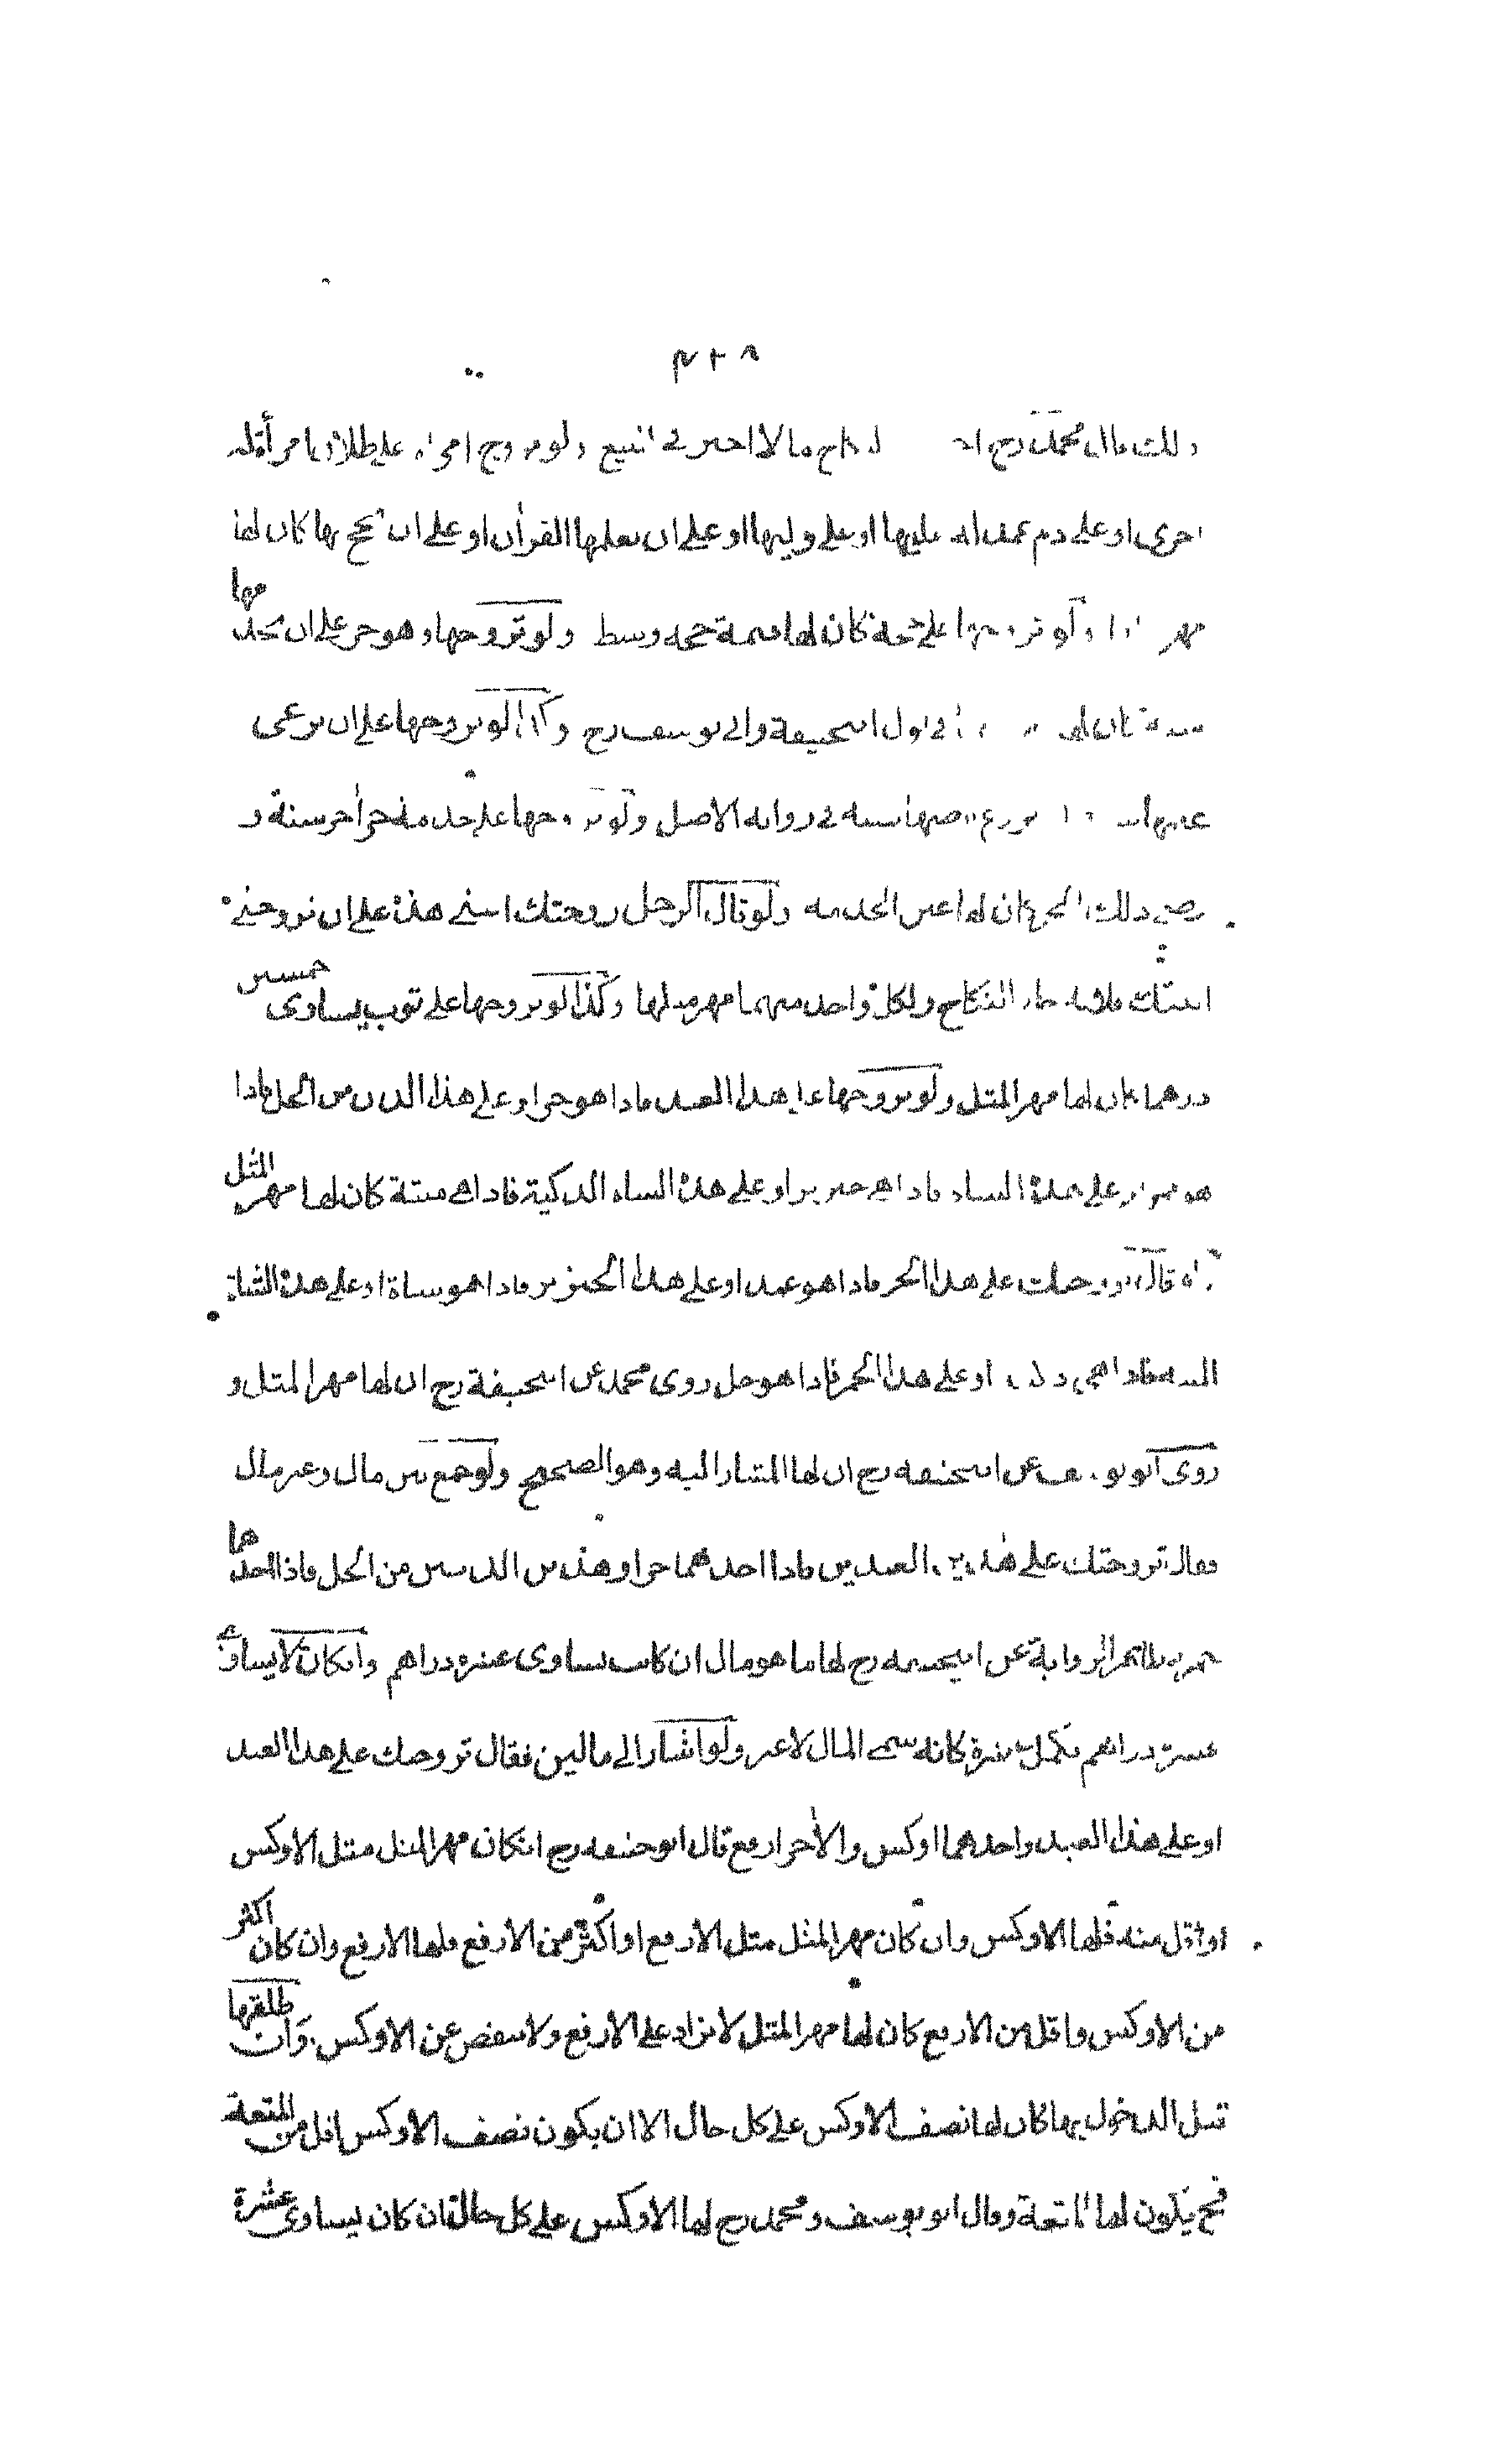 ذلك قال محمد رح ما لا احبر في البيع ولو تزوج امراة على طلاق امرأة له
اخرى او على دم عمد له عليها او على وليها او على ان يعلمها القرآن او على ان يحج بها كان لها
مهر ولو تزوجها على حجة كان لها قيمة حجة وسط ولو تزوجها وهو حر على ان يخدمها
سنة كان لها في قول ابيحنيفة وابي يوسف رح وكذا لو تزوجها على ان يرعى
غنمها سنة في رواية الاصل ولو تزوجها على خدمة حر آخر سنة و
رضي ذلك الحر كان لها عين الخدمة ولو قال الرجل زوجتك ابنتي هذه على ان تزوجني
ابنتك هذه جاز النكاح ولكل واحد منهما مهر مثلها وكذا لو تزوجها على ثوب يساوى خمسين
درهما كان لها مهر المثل ولو تزوجها على هذا العبد فاذا هو حر او على هذا الدن من الخل فاذا
هو خمر او على هذه الشاة فاذا هي خنزير او على هذه الشاة الذكية فاذا هي ميتة كان لها مهر المثل
قال تزوجتك على هذا الحر فاذا هو عبد او على هذا الخنزير فاذا هو شاة او على هذه الشاة
الميتة فاذا هي ذكية او على هذا الخمر فاذا هو خل روى محمد عن ابيحنيفة رح ان لها مهر المثل و
روى ابو يوسف عن ابيحنيفة رح ان لها المشار اليه وهو الصحيح ولو جمع بين مال وغير مال
فقال تزوجتك على هذين العبدين فاذا احدهما حر او هذين الدنين من الخل فاذا احدهما
خمر الرواية عن ابيحنيفة رح لها ما هو مال ان كانت يساوى عشرة دراهم وان كان لا يساوى
عشرة دراهم يكمل عشرة كانه سمى المال لا غير ولو اشار الى مالين فقال تزوجتك على هذا العبد
او على هذا العبد واحدهما اوكس والآخر ارفع قال ابو حنيفه رح ان كان مهر المثل مثل الاوكس
او اقل منه فلها الاوكس وان كان مهر المثل مثل الارفع او اكثر من الارفع فلها الارفع وان كان اكثر
من الاوكس واقل من الارفع كان لها مهر المثل لا يزاد على الارفع ولا ينقص عن الاوكس وان طلقها
قبل الدخول بها كان لها نصف الاوكس على كل حال الا ان يكون نصف الاوكس اقل من المتعة
فح يكون لها المتعة وقال ابو يوسف ومحمد رح لها الاوكس على كل حال فان كان يساوى عشرة